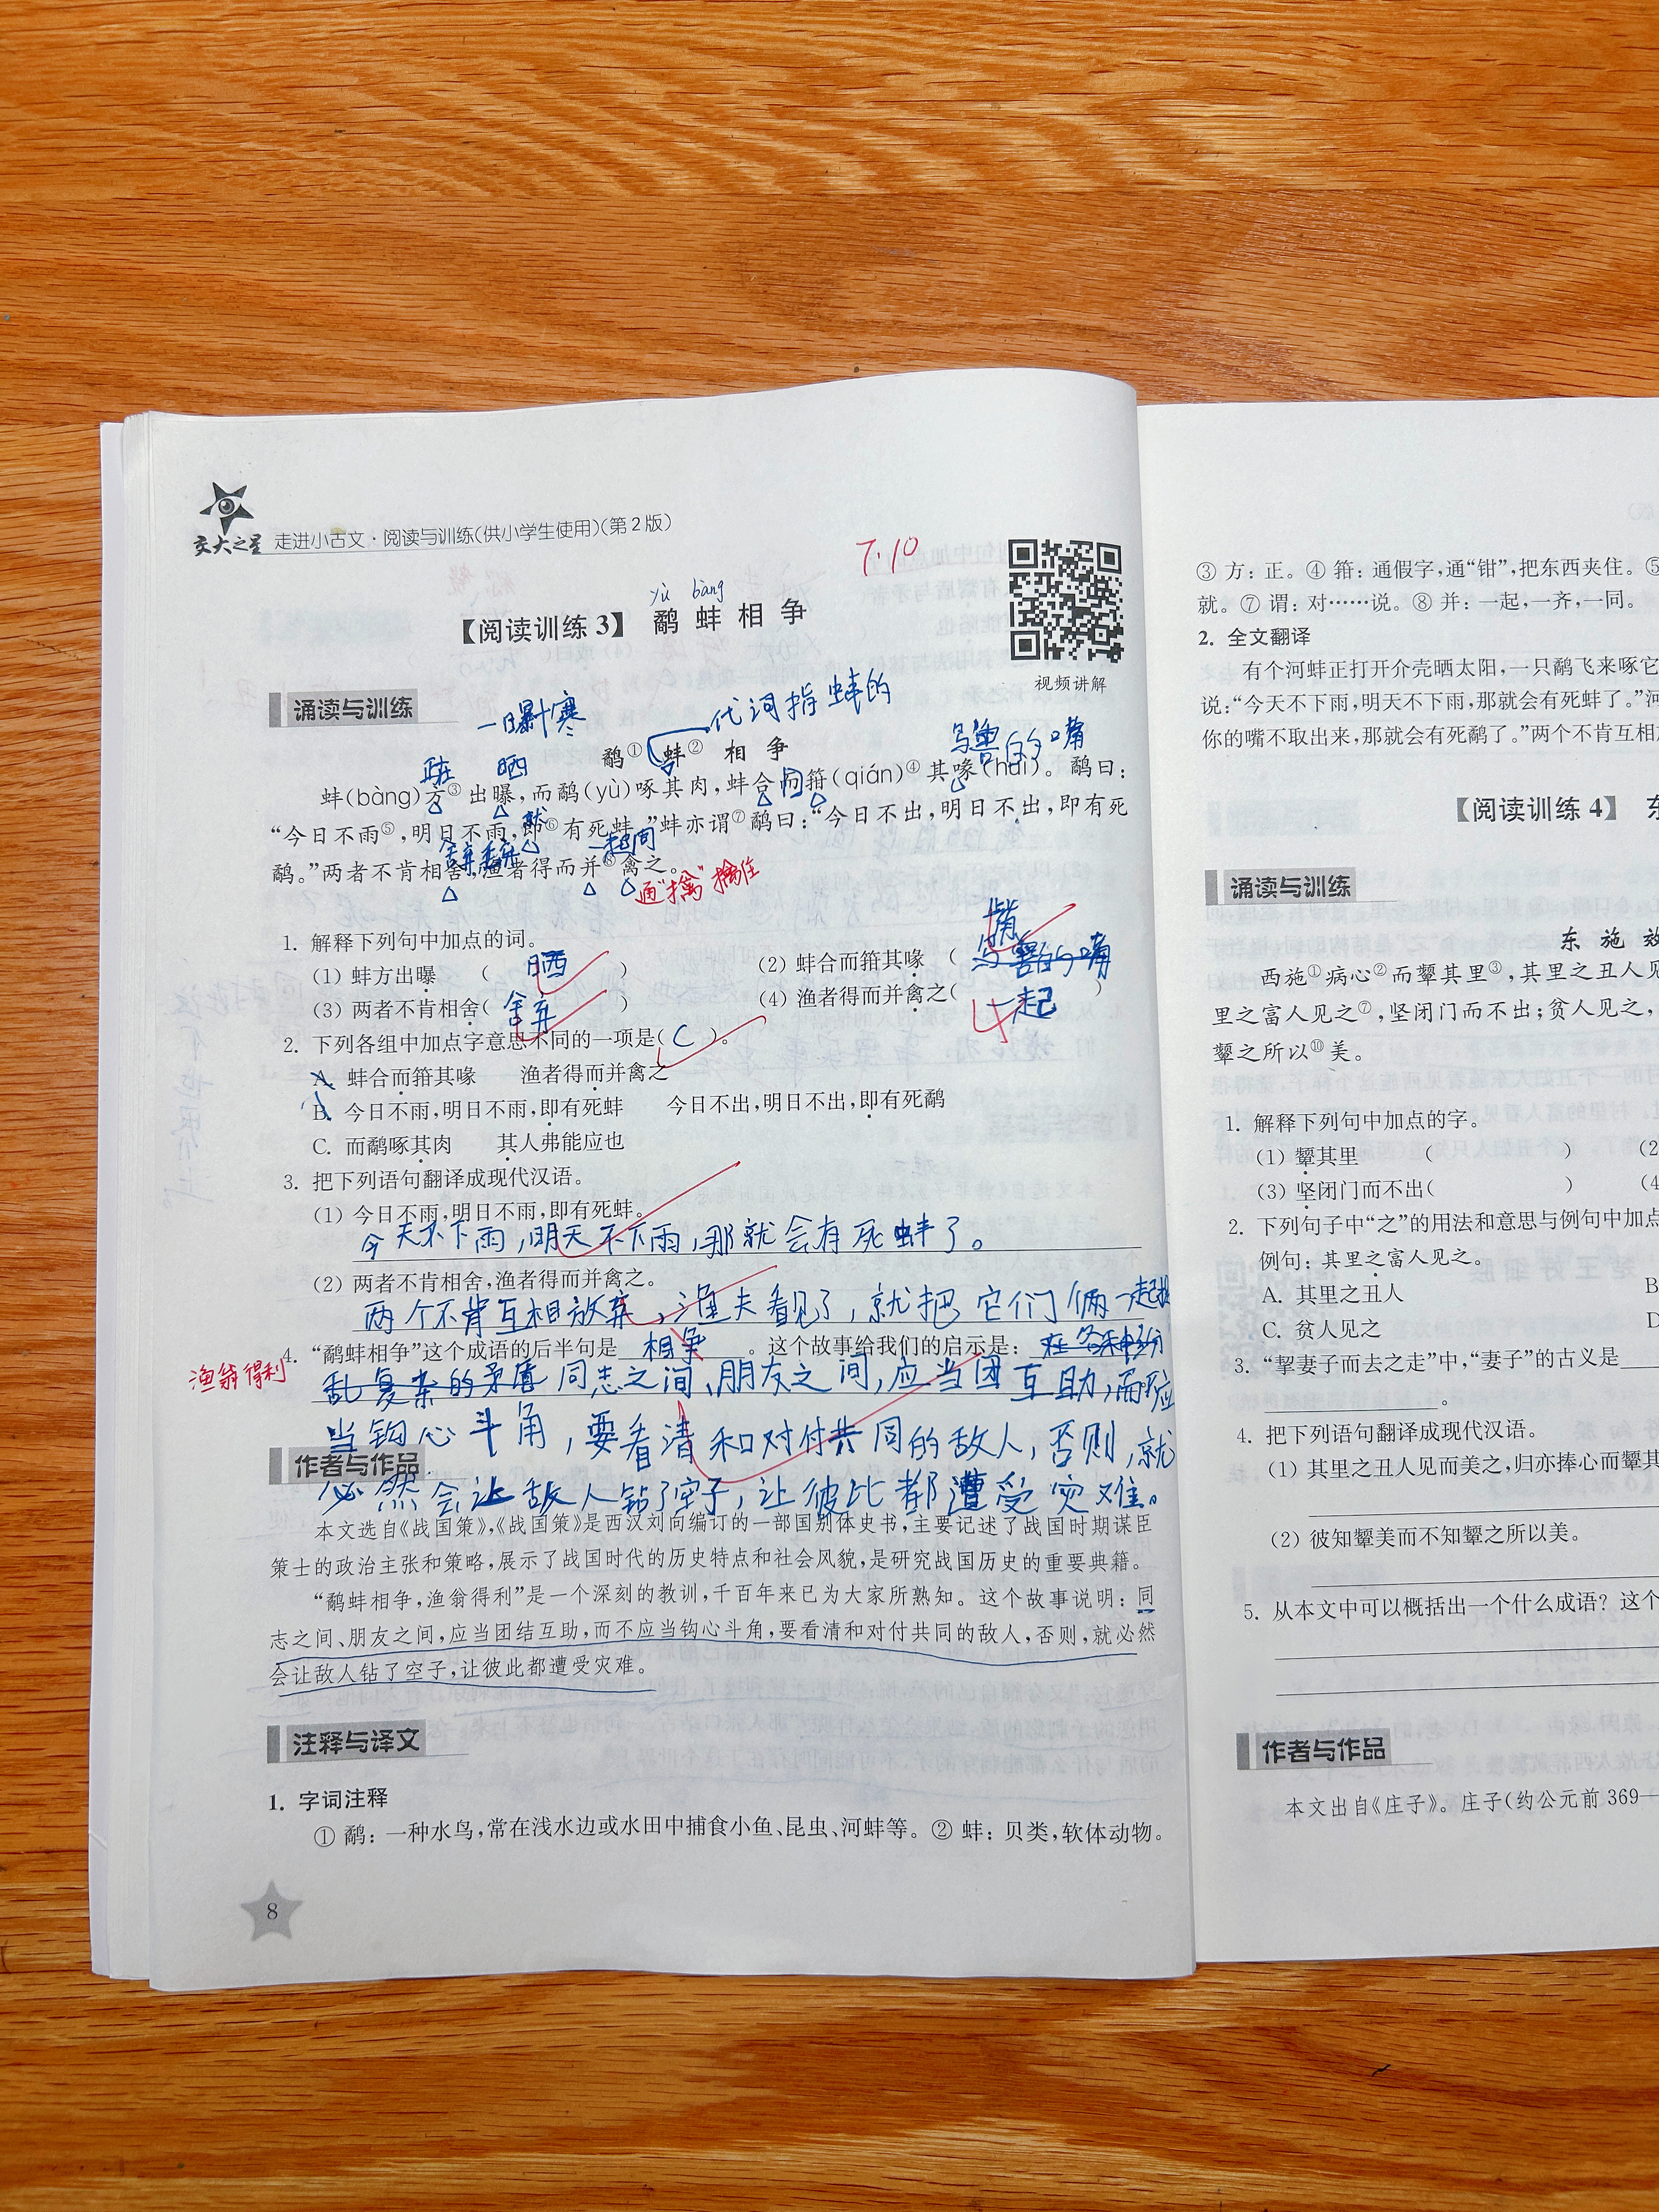 交大之星 走进小古文·阅读与训练(供小学生使用)(第2版)
7.10
yù bàng
【阅读训练3】 鹬蚌相争
视频讲解
诵读与训练
一曝十寒
代词指蚌的
鹬① 蚌② 相 争
晒
鸟兽的嘴
蚌(bàng)方③出曝,而鹬(yù)啄其肉,蚌合而箝(qián)④其喙(huì)。鹬曰:
就
“今日不雨⑤,明日不雨,即⑥有死蚌。”蚌亦谓⑦鹬曰:“今日不出,明日不出,即有死
舍弃 一起
鹬。”两者不肯相舍,渔者得而并⑧禽之。
通“擒”擒住
1. 解释下列句中加点的词。
(1) 蚌方出曝 ( 晒 )
(2) 蚌合而箝其喙 ( 嘴 )
(3) 两者不肯相舍( 舍弃 )
(4) 渔者得而并禽之( 一起 )
2. 下列各组中加点字意思不同的一项是( C )。
A. 蚌合而箝其喙 渔者得而并禽之
B. 今日不雨,明日不雨,即有死蚌 今日不出,明日不出,即有死鹬
C. 而鹬啄其肉 其人弗能应也
3. 把下列语句翻译成现代汉语。
(1) 今日不雨,明日不雨,即有死蚌。
今天不下雨,明天不下雨,那就会有死蚌了。
(2) 两者不肯相舍,渔者得而并禽之。
两个不肯互相放弃,渔夫看见了,就把它们俩一起
4. “鹬蚌相争”这个成语的后半句是 相争 。这个故事给我们的启示是:在各种纷
渔翁得利
乱复杂的矛盾同志之间、朋友之间,应当团互助,而不应
当钩心斗角,要看清和对付共同的敌人,否则,就
作者与作品
必然会让敌人钻了空子,让彼此都遭受灾难。
本文选自《战国策》,《战国策》是西汉刘向编订的一部国别体史书,主要记述了战国时期谋臣
策士的政治主张和策略,展示了战国时代的历史特点和社会风貌,是研究战国历史的重要典籍。
“鹬蚌相争,渔翁得利”是一个深刻的教训,千百年来已为大家所熟知。这个故事说明:同
志之间、朋友之间,应当团结互助,而不应当钩心斗角,要看清和对付共同的敌人,否则,就必然
会让敌人钻了空子,让彼此都遭受灾难。
注释与译文
1. 字词注释
① 鹬:一种水鸟,常在浅水边或水田中捕食小鱼、昆虫、河蚌等。② 蚌:贝类,软体动物。
8
③ 方:正。④ 箝:通假字,通“钳”,把东西夹住。⑤
就。⑦ 谓:对……说。⑧ 并:一起,一齐,一同。
2. 全文翻译
有个河蚌正打开介壳晒太阳,一只鹬飞来啄它
说:“今天不下雨,明天不下雨,那就会有死蚌了。”河
你的嘴不取出来,那就会有死鹬了。”两个不肯互相
【阅读训练4】 东
诵读与训练
东 施 效
西施①病心②而颦其里③,其里之丑人见
里之富人见之⑦,坚闭门而不出;贫人见之,
颦之所以⑩美。
1. 解释下列句中加点的字。
(1) 颦其里 ( ) (2
(3) 坚闭门而不出( ) (4
2. 下列句子中“之”的用法和意思与例句中加点
例句:其里之富人见之。
A. 其里之丑人 B
C. 贫人见之 D
3. “挈妻子而去之走”中,“妻子”的古义是
。
4. 把下列语句翻译成现代汉语。
(1) 其里之丑人见而美之,归亦捧心而颦其
(2) 彼知颦美而不知颦之所以美。
5. 从本文中可以概括出一个什么成语?这个
作者与作品
本文出自《庄子》。庄子(约公元前369—